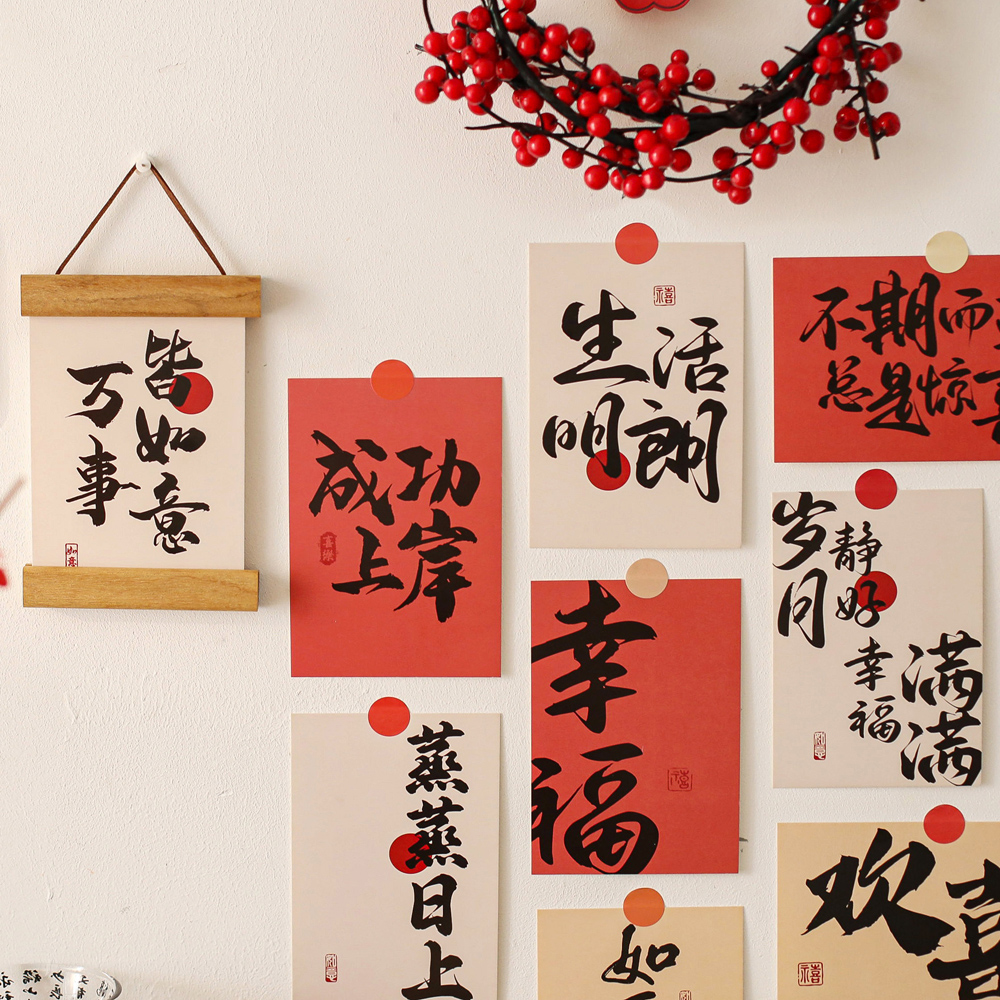 万事
皆如意
如意
成功
上岸
喜樂
禧
生活
明朗
不期而
总是惊喜
岁月
静好
幸福
满满
幸福
禧
蒸蒸日上
如
欢喜
禧